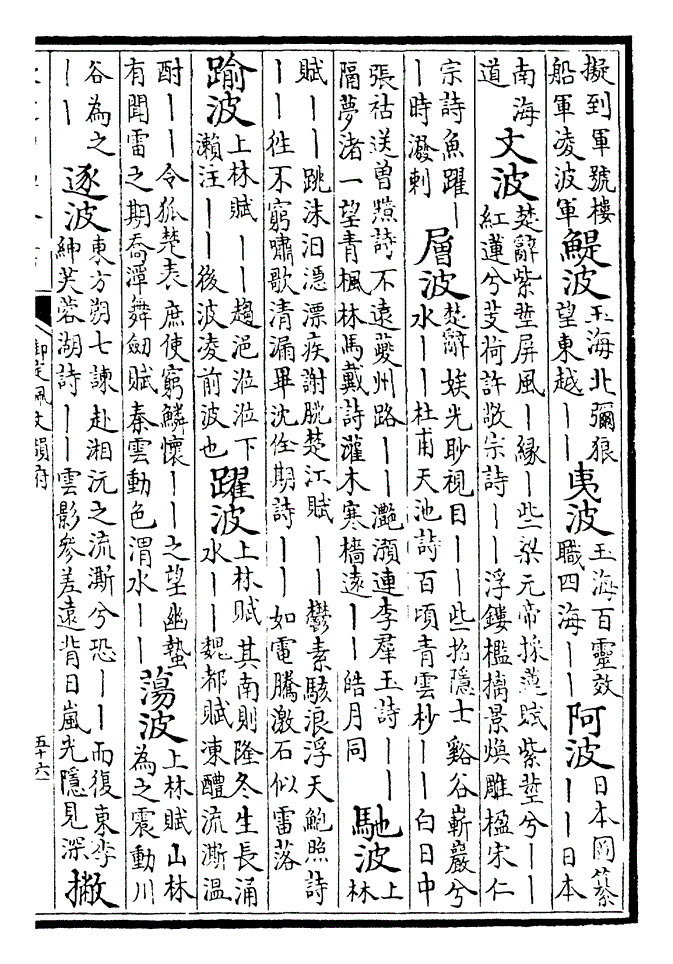 擬到軍號樓船軍凌波軍 鯷波 玉海北彌狼望東越—— 夷波 玉海百靈效職四海—— 阿波 日本圖纂——日本
南海道 文波 楚辭紫莖屏風—緣—些梁元帝採蓮賦紫莖兮——紅蓮兮芰荷許敬宗詩——浮鏤檻摛景煥雕楹宋仁
宗詩魚躍—時潑剌 層波 楚辭娭光眇視目——些招隱士谿谷嶄巖兮水——杜甫天池詩百頃青雲杪——白日中
張祜送曾黯詩不遠夔州路——灩澦連李羣玉詩——隔夢渚一望青楓林馬戴詩灌木寒檣遠——皓月同 馳波 上林
賦——跳沬汩濦漂疾謝朓楚江賦——鬱素駭浪浮天鮑照詩——徃不窮嘯歌清漏畢沈佺期詩——如電騰激石似雷落
踰波 上林賦——趨浥涖涖下瀨注——後波凌前波也 躍波 上林賦其南則隆冬生長涌水——魏都賦凍醴流澌温
酎——令狐楚表庶使窮鱗懷——之望幽蟄有聞雷之期喬潭舞劒賦秦雲動色渭水—— 蕩波 上林賦山林為之震動川
谷為之—— 逐波 東方朔七諫赴湘沅之流澌兮恐——而復東李紳芙蓉湖詩——雲影參差遠背日嵐光隱見深 撇
御定佩文韻府
五十六